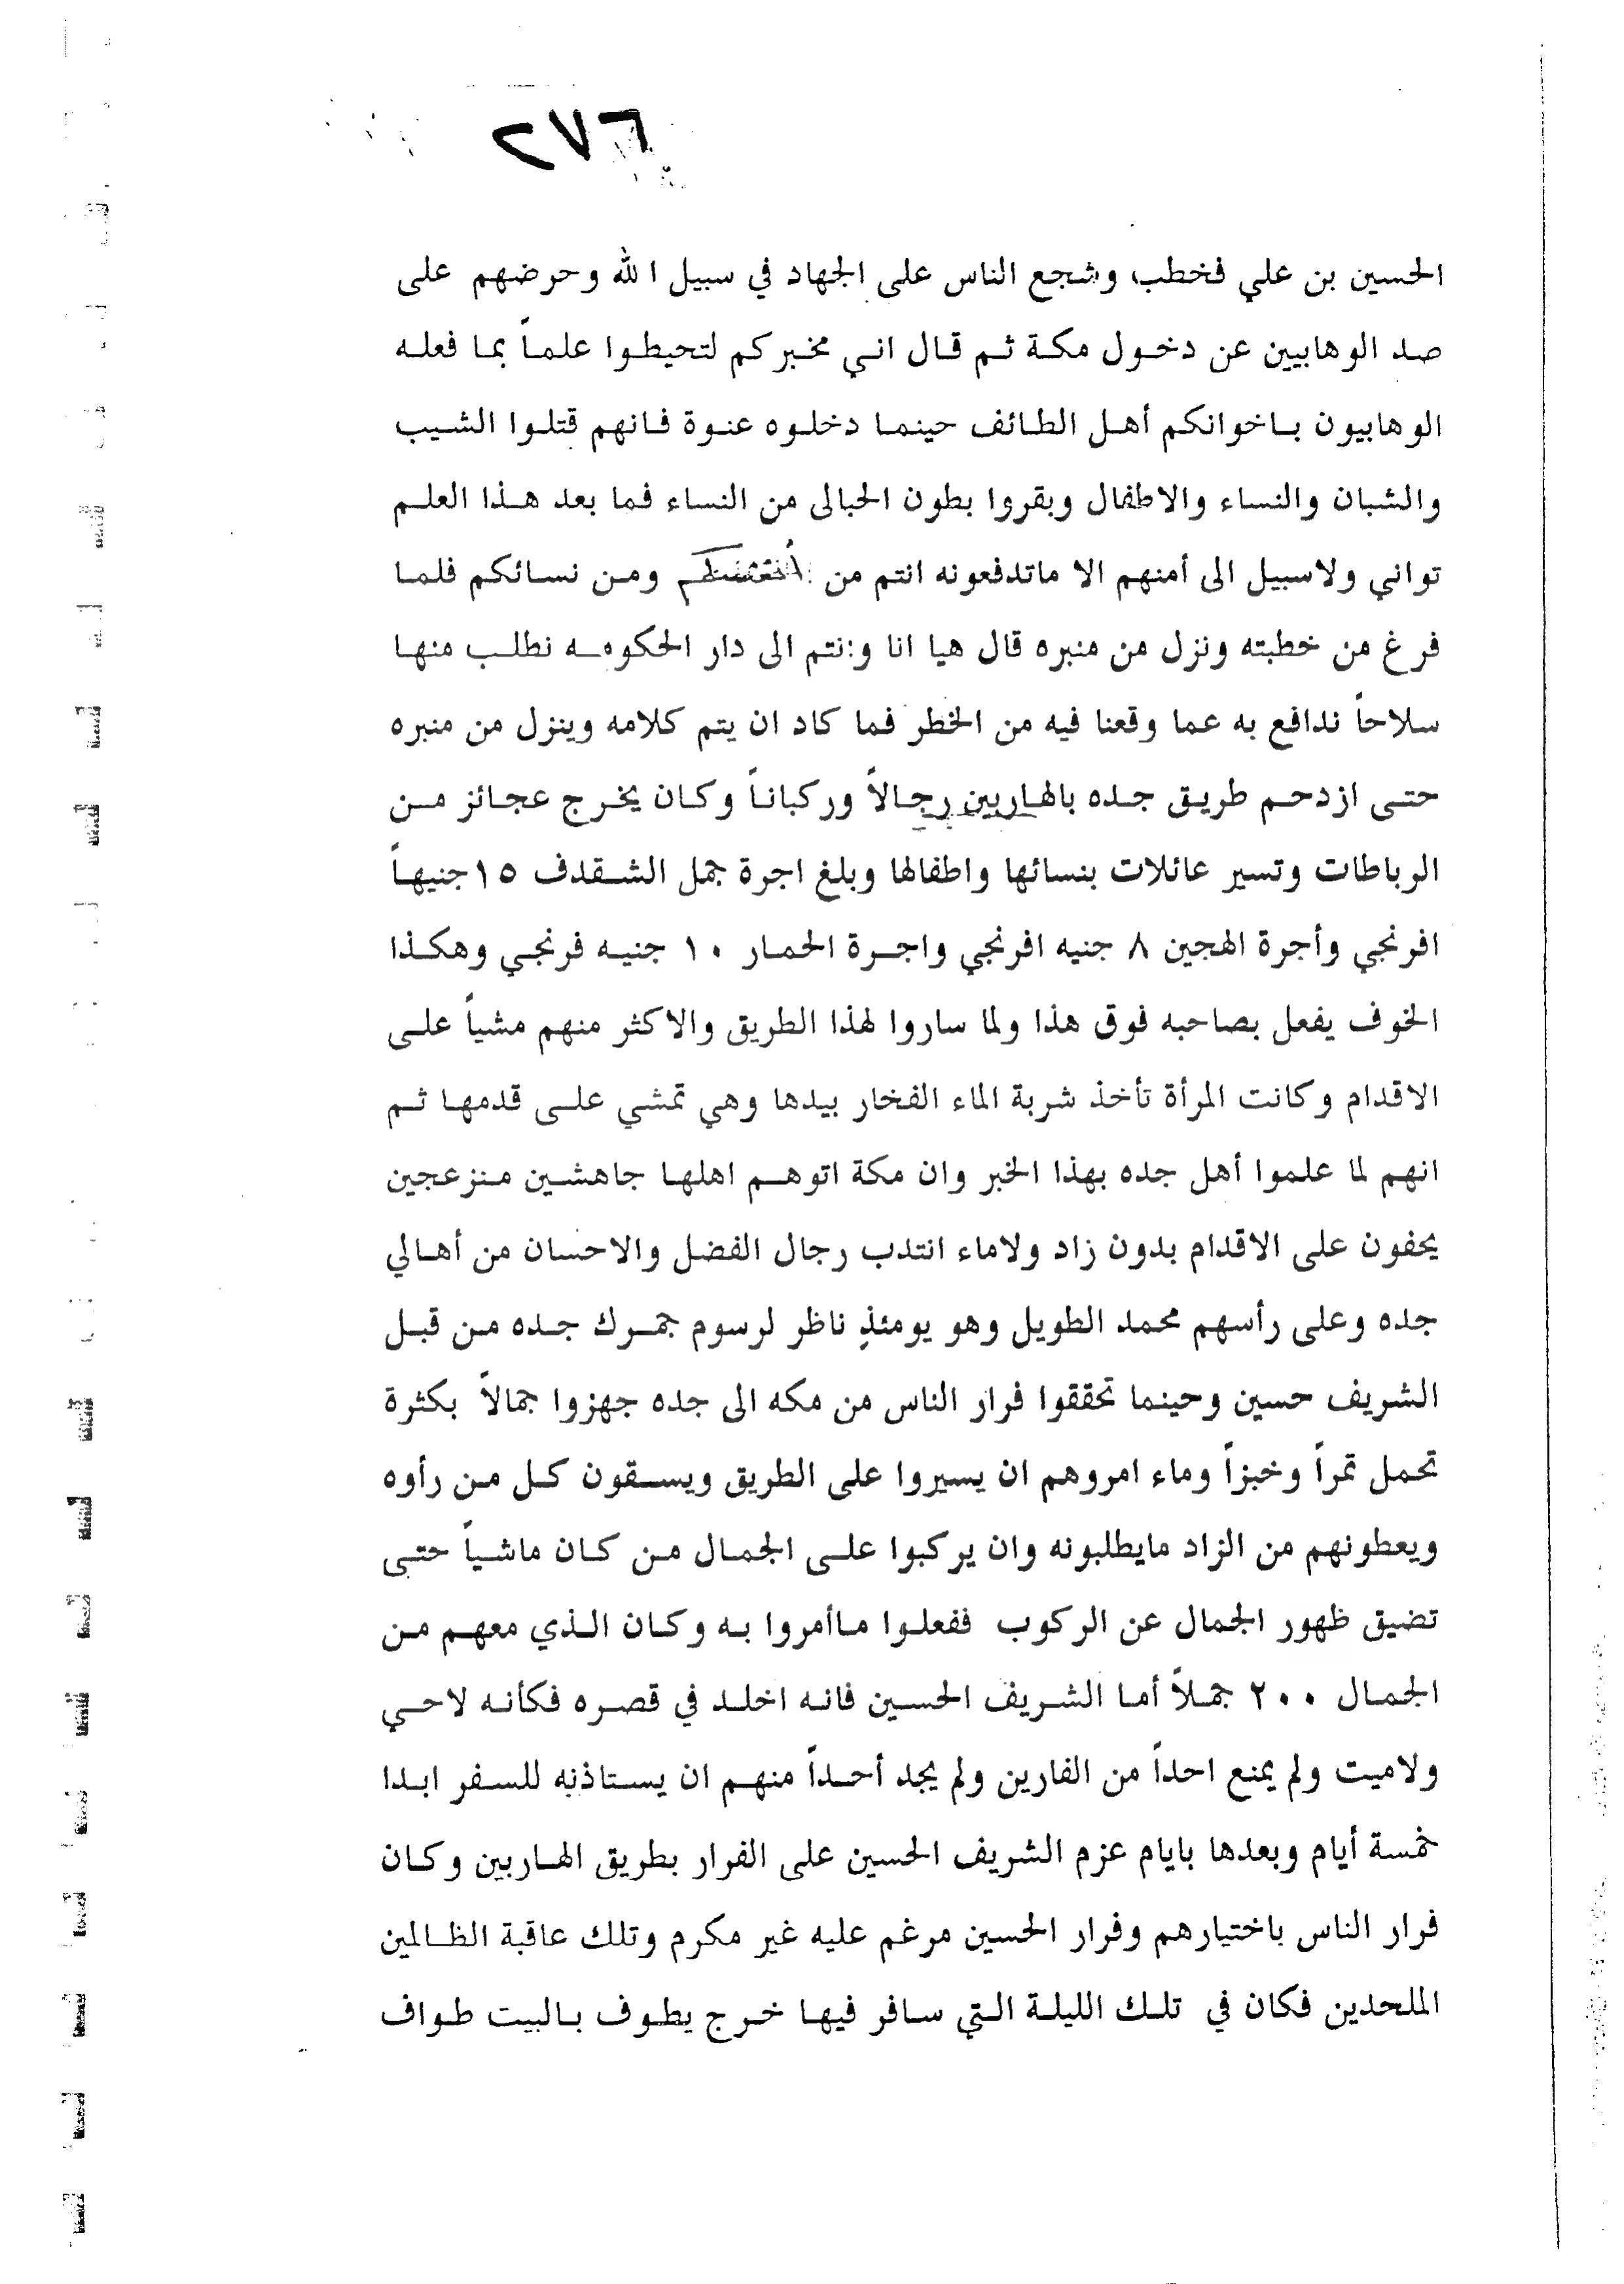 ٢٧٦
الحسين بن علي فخطب وشجع الناس على الجهاد في سبيل الله وحرضهم على
صد الوهابيين عن دخول مكة ثم قال اني مخبركم لتحيطوا علماً بما فعله
الوهابيون باخوانكم أهل الطائف حينما دخلوه عنوة فانهم قتلوا الشيب
والشبان والنساء والاطفال وبقروا بطون الحبالى من النساء فما بعد هذا العلم
تواني ولاسبيل الى أمنهم الا ماتدفعونه انتم من ومن نسائكم فلما
فرغ من خطبته ونزل من منبره قال هيا انا وانتم الى دار الحكومه نطلب منها
سلاحاً ندافع به عما وقعنا فيه من الخطر فما كاد ان يتم كلامه وينزل من منبره
حتى ازدحم طريق جده بالهاربين رجالاً وركباناً وكان يخرج عجائز من
الرباطات وتسير عائلات بنسائها واطفالها وبلغ اجرة جمل الشقدف ١٥ جنيهاً
افرنجي وأجرة الهجين ٨ جنيه افرنجي واجرة الحمار ١٠ جنيه فرنجي وهكذا
الخوف يفعل بصاحبه فوق هذا ولما ساروا لهذا الطريق والاكثر منهم مشياً على
الاقدام وكانت المرأة تأخذ شربة الماء الفخار بيدها وهي تمشي على قدمها ثم
انهم لما علموا أهل جده بهذا الخبر وان مكة اتوهم اهلها جاهشين منزعجين
يحفون على الاقدام بدون زاد ولاماء انتدب رجال الفضل والاحسان من أهالي
جده وعلى رأسهم محمد الطويل وهو يومئذٍ ناظر لرسوم جمرك جده من قبل
الشريف حسين وحينما تحققوا فرار الناس من مكه الى جده جهزوا جمالاً بكثرة
تحمل تمراً وخبزاً وماء امروهم ان يسيروا على الطريق ويسقون كل من رأوه
ويعطونهم من الزاد مايطلبونه وان يركبوا على الجمال من كان ماشياً حتى
تضيق ظهور الجمال عن الركوب ففعلوا ماأمروا به وكان الذي معهم من
الجمال ٢٠٠ جملاً أما الشريف الحسين فانه اخلد في قصره فكأنه لاحي
ولاميت ولم يمنع احداً من الفارين ولم يجد أحداً منهم ان يستاذنه للسفر ابدا
خمسة أيام وبعدها بايام عزم الشريف الحسين على الفرار بطريق الهاربين وكان
فرار الناس باختيارهم وفرار الحسين مرغم عليه غير مكرم وتلك عاقبة الظالمين
الملحدين فكان في تلك الليلة التي سافر فيها خرج يطوف بالبيت طواف